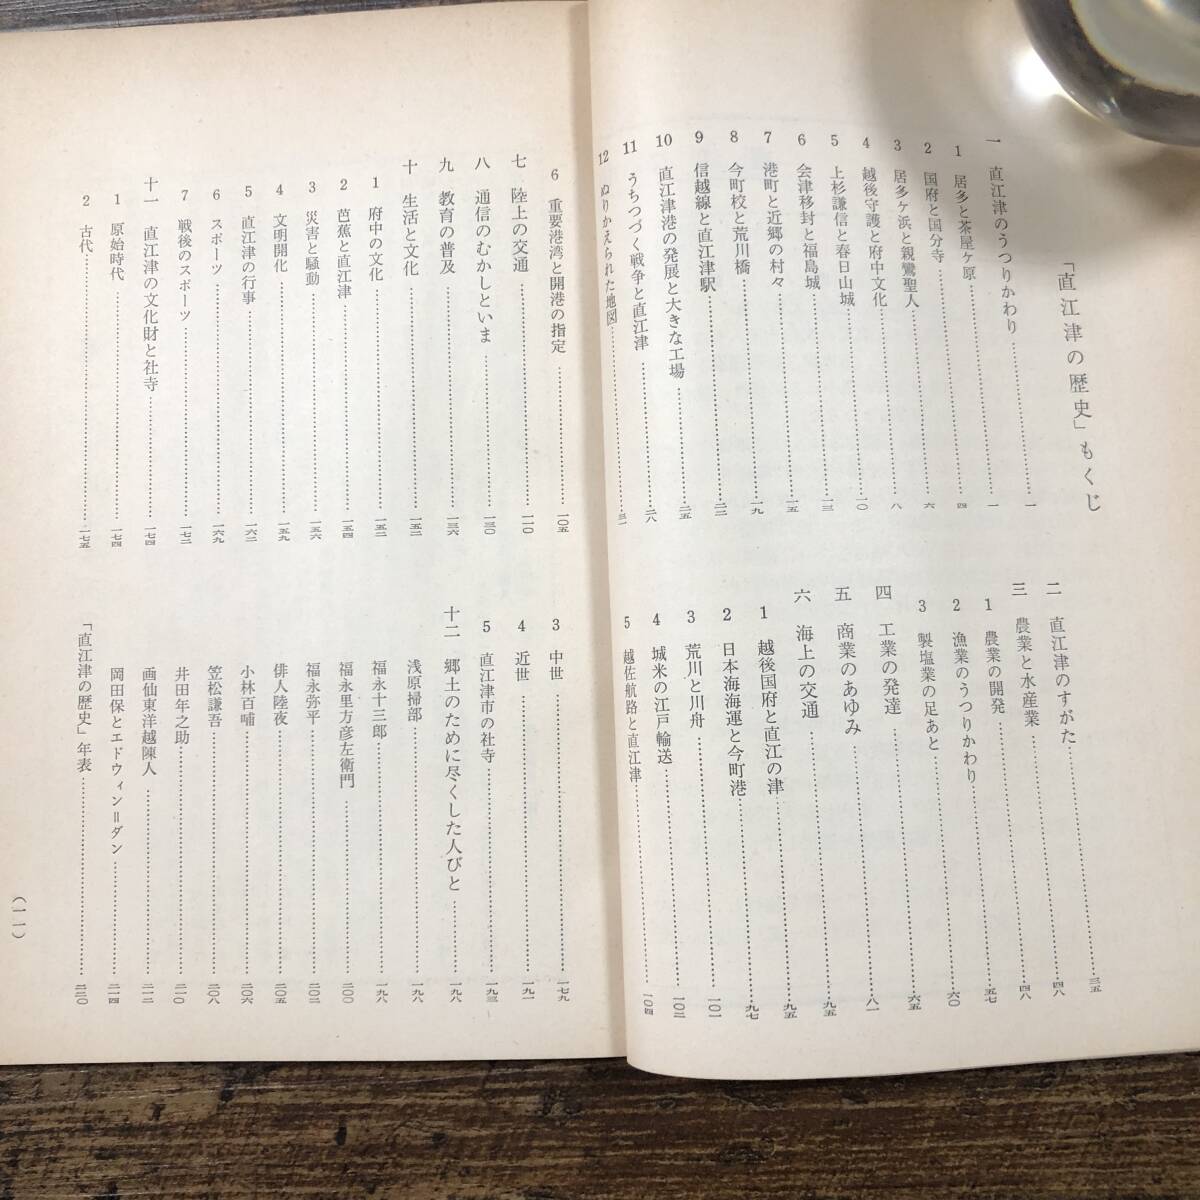 「直江津の歴史」もくじ
一 直江津のうつりかわり……一
1 居多と茶屋ケ原……一
2 国府と国分寺……四
3 居多ケ浜と親鸞聖人……六
4 越後守護と府中文化……八
5 上杉謙信と春日山城……一〇
6 会津移封と福島城……一三
7 港町と近郷の村々……一五
8 今町校と荒川橋……一九
9 信越線と直江津駅……二二
10 直江津港の発展と大きな工場……二五
11 うちつづく戦争と直江津……二八
12 ぬりかえられた地図……三一
二 直江津のすがた……三五
三 農業と水産業……四八
1 農業の開発……四八
2 漁業のうつりかわり……五七
3 製塩業の足あと……六〇
四 工業の発達……六五
五 商業のあゆみ……八一
六 海上の交通……九五
1 越後国府と直江の津……九五
2 日本海海運と今町港……九七
3 荒川と川舟……一〇一
4 城米の江戸輸送……一〇二
5 越佐航路と直江津……一〇四
6 重要港湾と開港の指定……一〇五
七 陸上の交通……一一〇
八 通信のむかしといま……一三〇
九 教育の普及……一三六
十 生活と文化……一五二
1 府中の文化……一五二
2 芭蕉と直江津……一五四
3 災害と騒動……一五六
4 文明開化……一五九
5 直江津の行事……一六二
6 スポーツ……一六九
7 戦後のスポーツ……一七二
十一 直江津の文化財と社寺……一七四
1 原始時代……一七四
2 古代……一七五
3 中世……一七九
4 近世……一九一
5 直江津市の社寺……一九三
十二 郷土のために尽くした人びと……一九八
浅原掃部……一九八
福永十三郎……一九八
福永里方彦左衛門……二〇〇
福永弥平……二〇二
俳人陸夜……二〇五
小林百哺……二〇六
笠松謙吾……二〇八
井田年之助……二一〇
画仙東洋越陳人……二一二
岡田保とエドウィン＝ダン……二一四
「直江津の歴史」年表……二二〇
（一一）